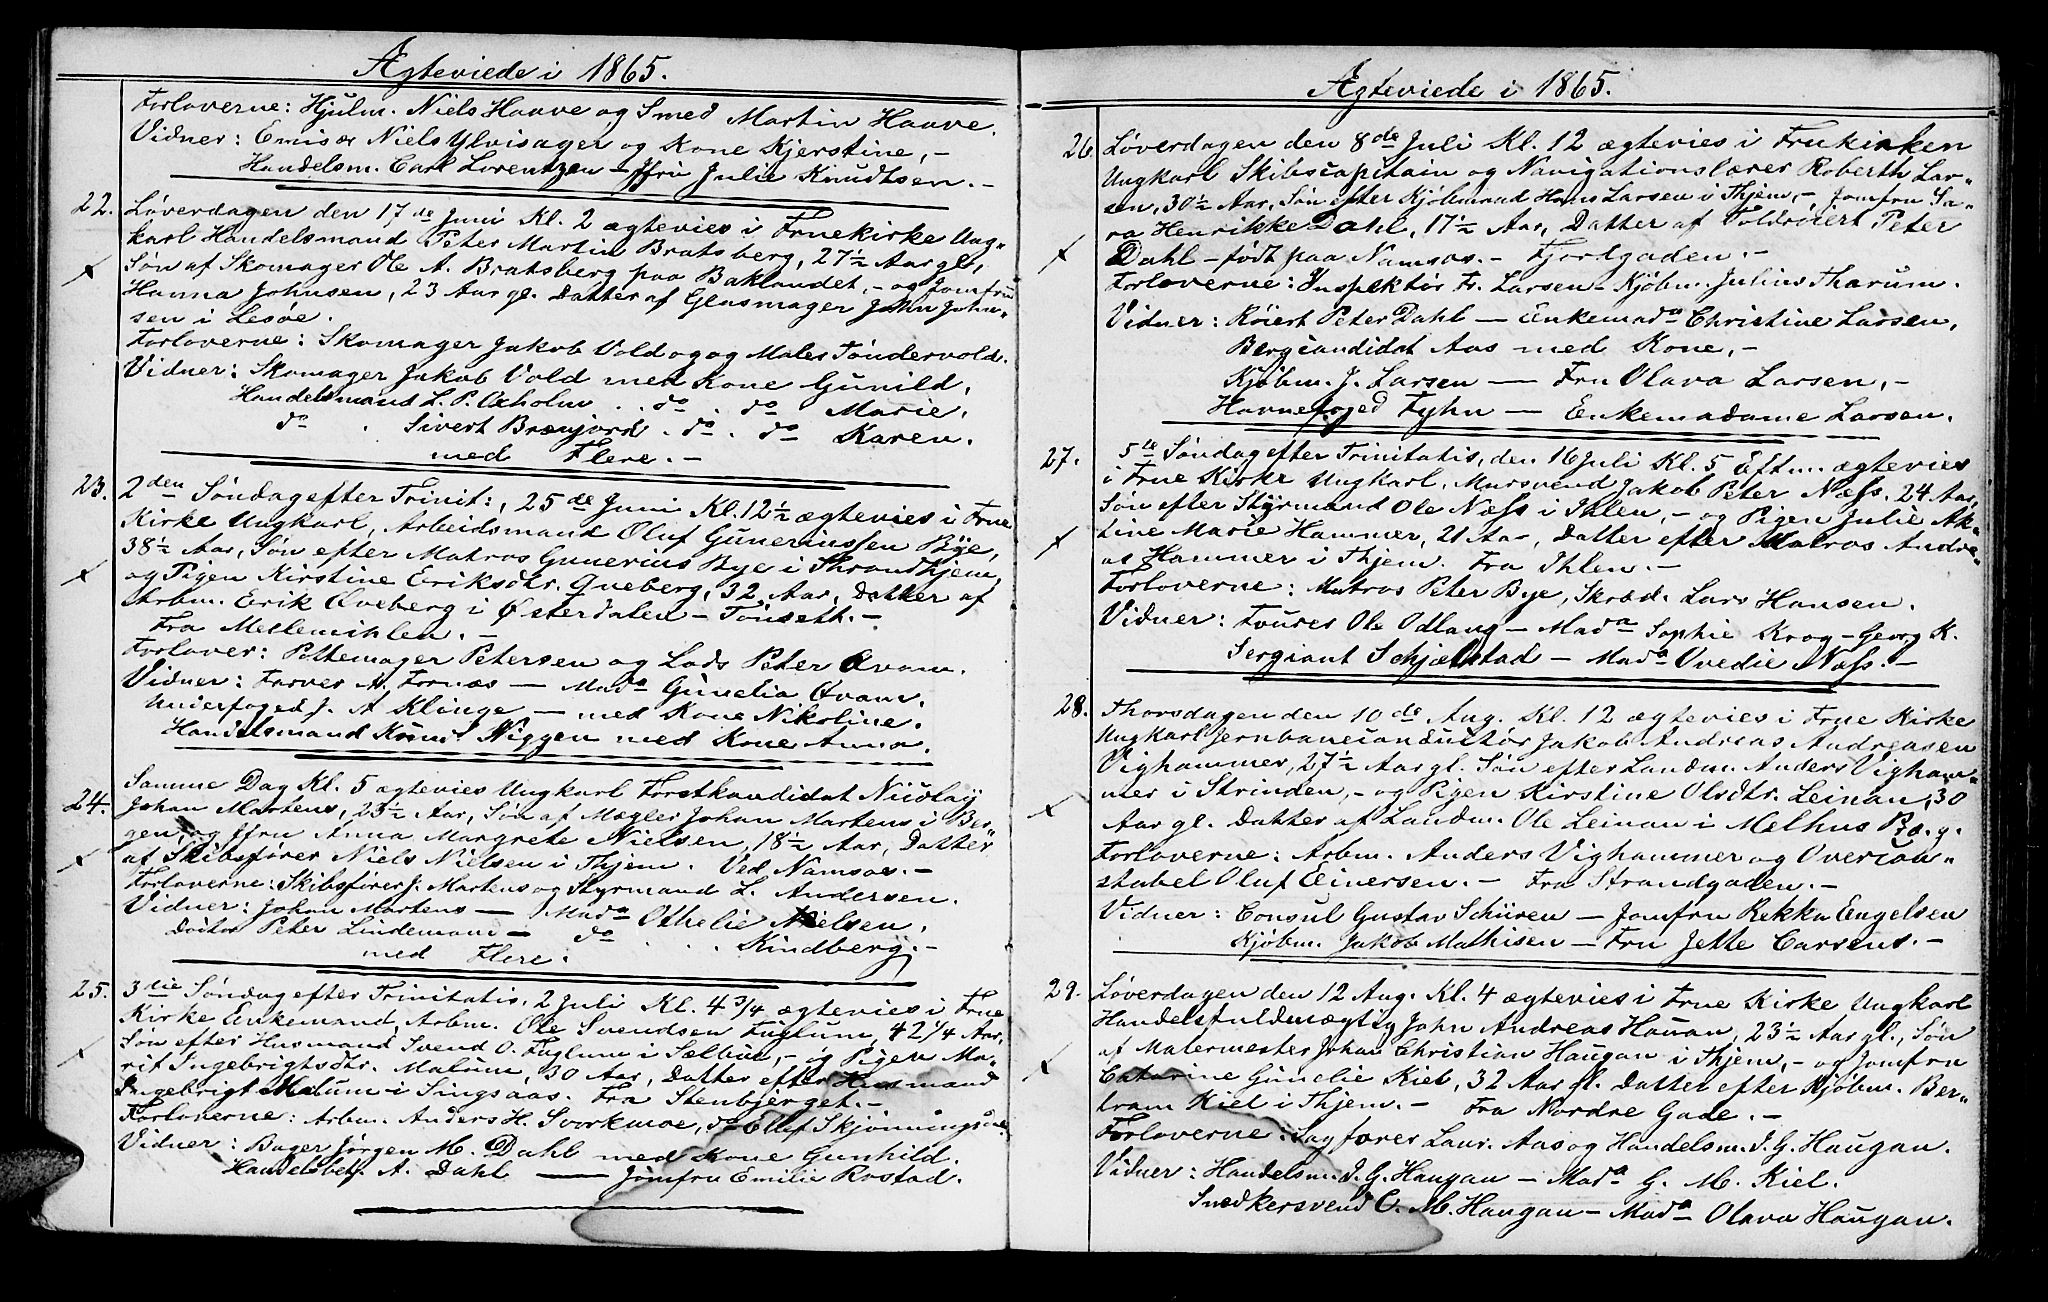 Ægteviede i 1865.
Forloverne: Hjulm. Niels Haave og Smed Martin Haave.
Vidner: Emisær Niels Ylvisager og Kone Kjerstine, -
Handelsm. Carl Lorentzen - Jfru Julie Knudtsen. -
22. Løverdagen den 17de Juni Kl. 2 ægtevies i Fruekirke Ung-
karl Handelsmand Peter Martin Bratsberg, 27½ Aar gl,
Søn af Skomager Ole A. Bratsberg paa Baklandet, - og Jomfru
Hanna Johnsen, 23 Aar gl. Datter af Glasmager John John-
sen i
Forloverne: Skomager Jakob Vold og og Maler Tøndervold.
Vidner: Skomager Jakob Vold med Kone Gunild,
Handelsmand L. P. Oxholm . . do . do Marie,
do . Sivert Brænjord . do . do Karen.
med Flere. -
23. 2den Søndag efter Trinit:, 25de Juni Kl. 12½ ægtevies i Frue
Kirke Ungkarl, Arbeidsmand Oluf Guneriussen Bye,
38½ Aar, Søn efter Matros Gunerius Bye i Throndhjem,
og Pigen Kirstine Eriksdtr. Qveberg, 32 Aar, Datter af
Arbm. Erik Qveberg i Østerdalen - Tønseth. -
Fra Mellemihlen. -
Forlover: Pottemager Petersen og Lods Peter Qvam.
Vidner: Farver M. Fornæs - Mada Gunelia Qvam.
Underfoged J. A Klinge - med Kone Nikoline.
Handelsmand Knud Niggen med Kone Anna.
24. Samme Dag Kl. 5 ægtevies Ungkarl Forstkandidat Nicolay
Johan Martens, 25½ Aar, Søn af Mægler Johan Martens i Ber-
gen, og Jfru Anna Margrete Nielsen, 18½ Aar, Datter
af Skibsfører Niels Nielsen i Thjem. Ved Namsos. -
Forloverne: Skibsfører J. Martens og Styrmand L. Andersen.
Vidner: Johan Martens - Mada Othelie Nielsen,
Doctor Peter Lindemann - do . . Kindberg. -
med Flere.
25. 3die Søndag efter Trinitatis, 2 Juli Kl. 4 3/4 ægtevies i Frue
Kirke Enkemand, Arbm. Ole Svendsen Fuglum, 42 1/4 Aar,
Søn efter Husmand Svend O. Fuglum i Selbue, - og Pigen Ma-
rit Ingebrigtsdtr. Malum, 30 Aar, Datter efter Husmand
Ingebrigt Malum i Singsaas. Fra Stenbjerget. -
Forloverne: Arbm. Anders H. Svorkmoe, do Oluf
Vidner: Bager Jørgen M. Dahl med Kone Gunhild.
Handelsbetj A. Dahl - Jomfru Emilie Rostad.
Ægteviede i 1865.
26. Løverdagen den 8de Juli Kl. 12 ægtevies i Fruekirken
Ungkarl Skibscapitain og Navigationslærer Roberth Lar-
sen, 30½ Aar, Søn efter Kjøbmand Hans Larsen i Thjem, - Jomfru Sa-
ra Henrikke Dahl, 17½ Aar, Datter af Toldroiert Peter
Dahl - født paa Namsos. - Fjordgaden. -
Forloverne: Inspektør Fr. Larsen - Kjøbm. Julius Tharum.
Vidner: Roiert Peter Dahl - Enkemada Christine Larsen,
Bergcandidat Aas med Kone, -
Kjøbm. J. Larsen - Fru Olava Larsen, -
Havnefoged Fyhn - Enkemadame Larsen.
27. 5te Søndag efter Trinitatis, den 16 Juli Kl. 5 Eftm. ægtevies
i Frue Kirke Ungkarl, Mursvend Jakob Peter Næss, 24 Aar,
Søn efter Styrmand Ole Næss i Ihlen, - og Pigen Julie Ak-
tine Marie Hammer, 21 Aar, Datter efter Matros Andre-
as Hammer i Thjem. Fra Ihlen. -
Forloverne: Matros Peter Bye, Skræd. Lars Hansen.
Vidner: Foureer Ole Odlaug - Mada Sophie Krog - Georg K.
Sergiant Schjælstad - Mada Ovedie Næss. -
28. Thorsdagen den 10de Aug. Kl. 12 ægtevies i Frue Kirke
Ungkarl Jernbaneconductør Jakob Andreas Andreasen
Vighammer, 27½ Aar gl. Søn efter Landm. Anders Vigham-
mer i Strinden, - og Pigen Kirstine Olsdtr. Leinan, 30
Aar gl. Datter af Landm. Ole Leinan i Melhus Præ.g.
Forloverne: Arbm. Anders Vighammer og Overcon-
stabel Oluf Einersen. - Fra Strandgaden. -
Vidner: Consul Gustav Schüren - Jomfru Rekka Engelsen
Kjøbm. Jakob Mathisen - Fru Jette Carsens. -
29. Løverdagen den 12 Aug. Kl. 4 ægtevies i Frue Kirke Ungkarl
Handelsfuldmægtig John Andreas Haugan, 23½ Aar gl., Søn
af Malermester Johan Christian Haugan i Thjem, - og Jomfru
Catarine Gunelie Kiel, 32 Aar gl. Datter efter Kjøbm. Ber-
tram Kiel i Thjem. - Fra Nordre Gade. -
Forloverne: Sagfører Laur. Aas og Handelsm. J. G. Haugan.
Vidner: Handelsm. J. G. Haugan - Mada G. M. Kiel.
Snedkersvend C. M. Haugan - Mada Olava Haugan.